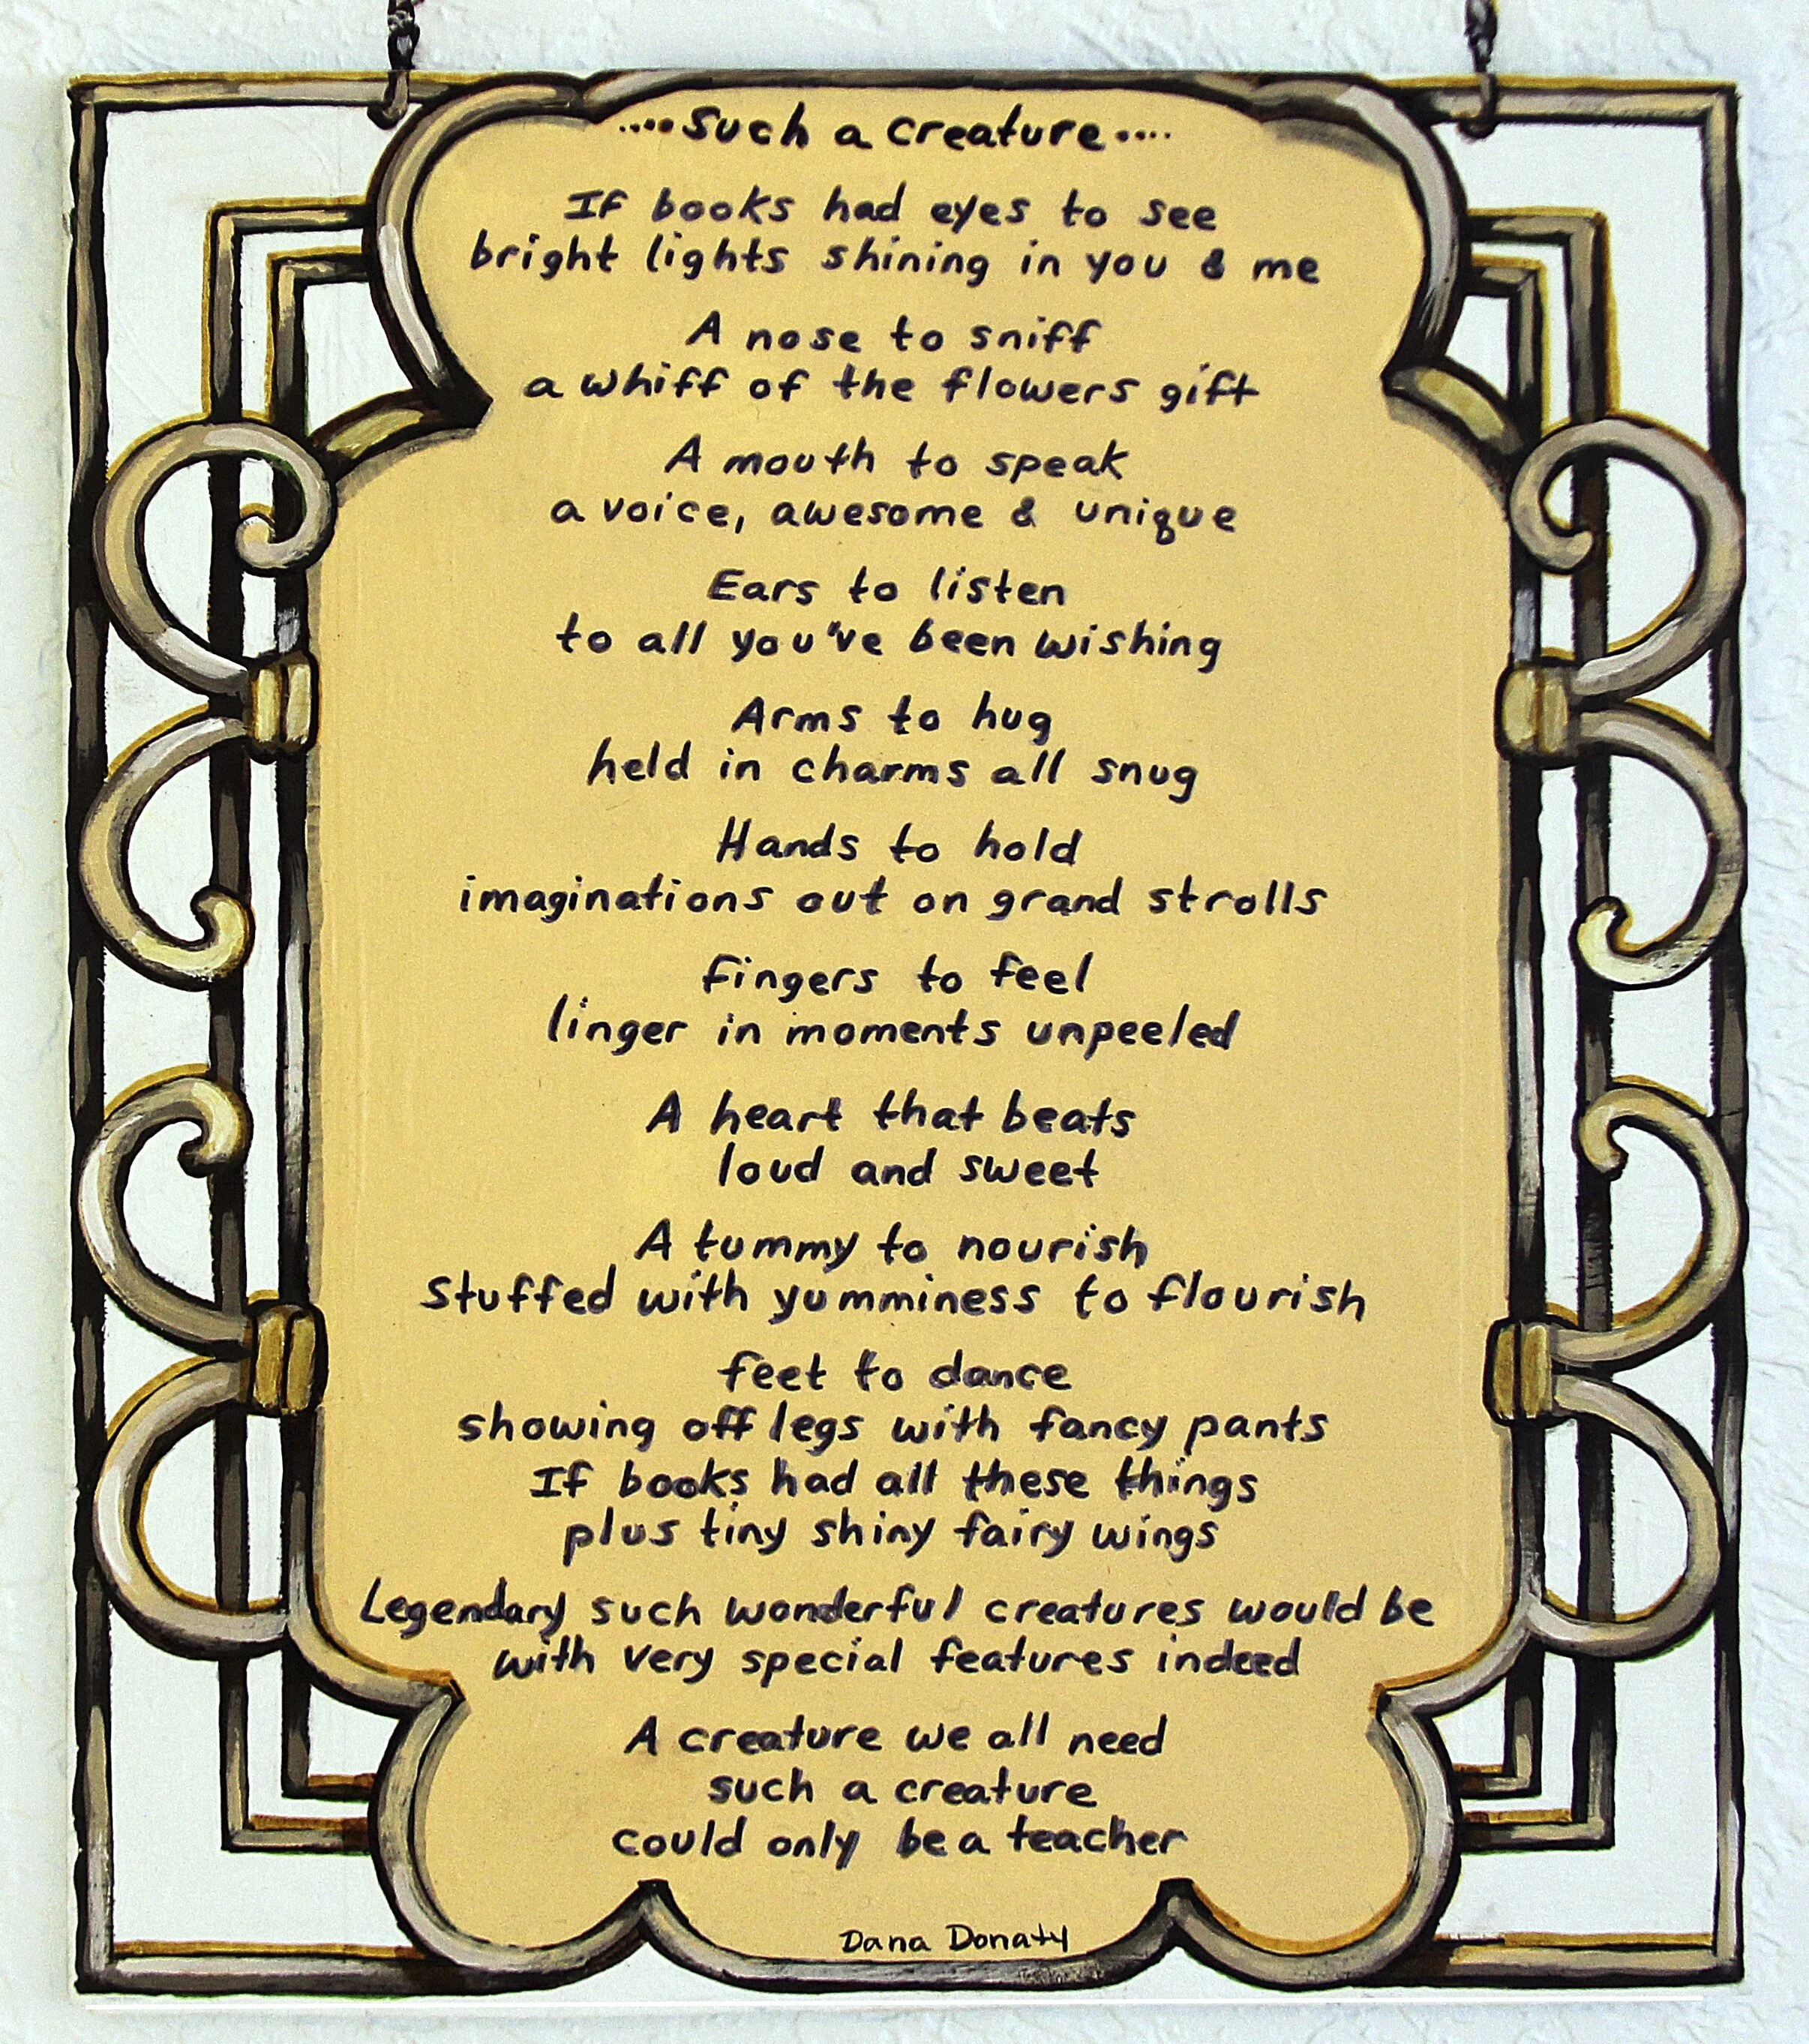 ....Such a creature....
If books had eyes to see
bright lights shining in you & me
A nose to sniff
a whiff of the flowers gift
A mouth to speak
a voice, awesome & unique
Ears to listen
to all you've been wishing
Arms to hug
held in charms all snug
Hands to hold
imaginations out on grand strolls
fingers to feel
linger in moments unpeeled
A heart that beats
loud and sweet
A tummy to nourish
Stuffed with yumminess to flourish
feet to dance
showing off legs with fancy pants
If books had all these things
plus tiny shiny fairy wings
Legendary such wonderful creatures would be
with very special features indeed
A creature we all need
such a creature
could only be a teacher
Dana Donaty